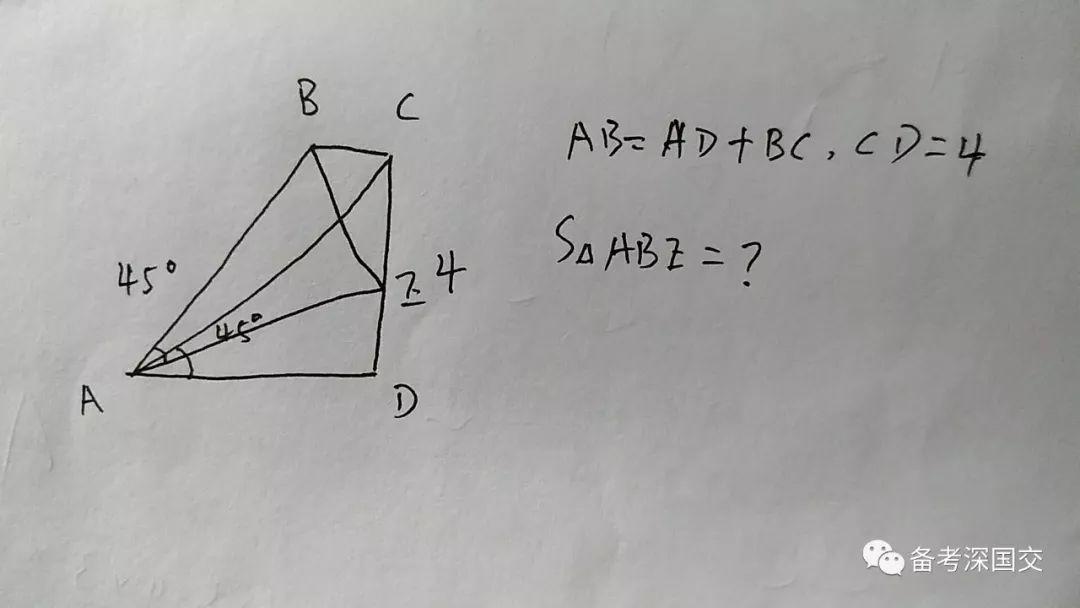 B
C
AB=AD+BC, CD=4
S△ABE=?
45°
E 4
45°
A
D
备考深国交